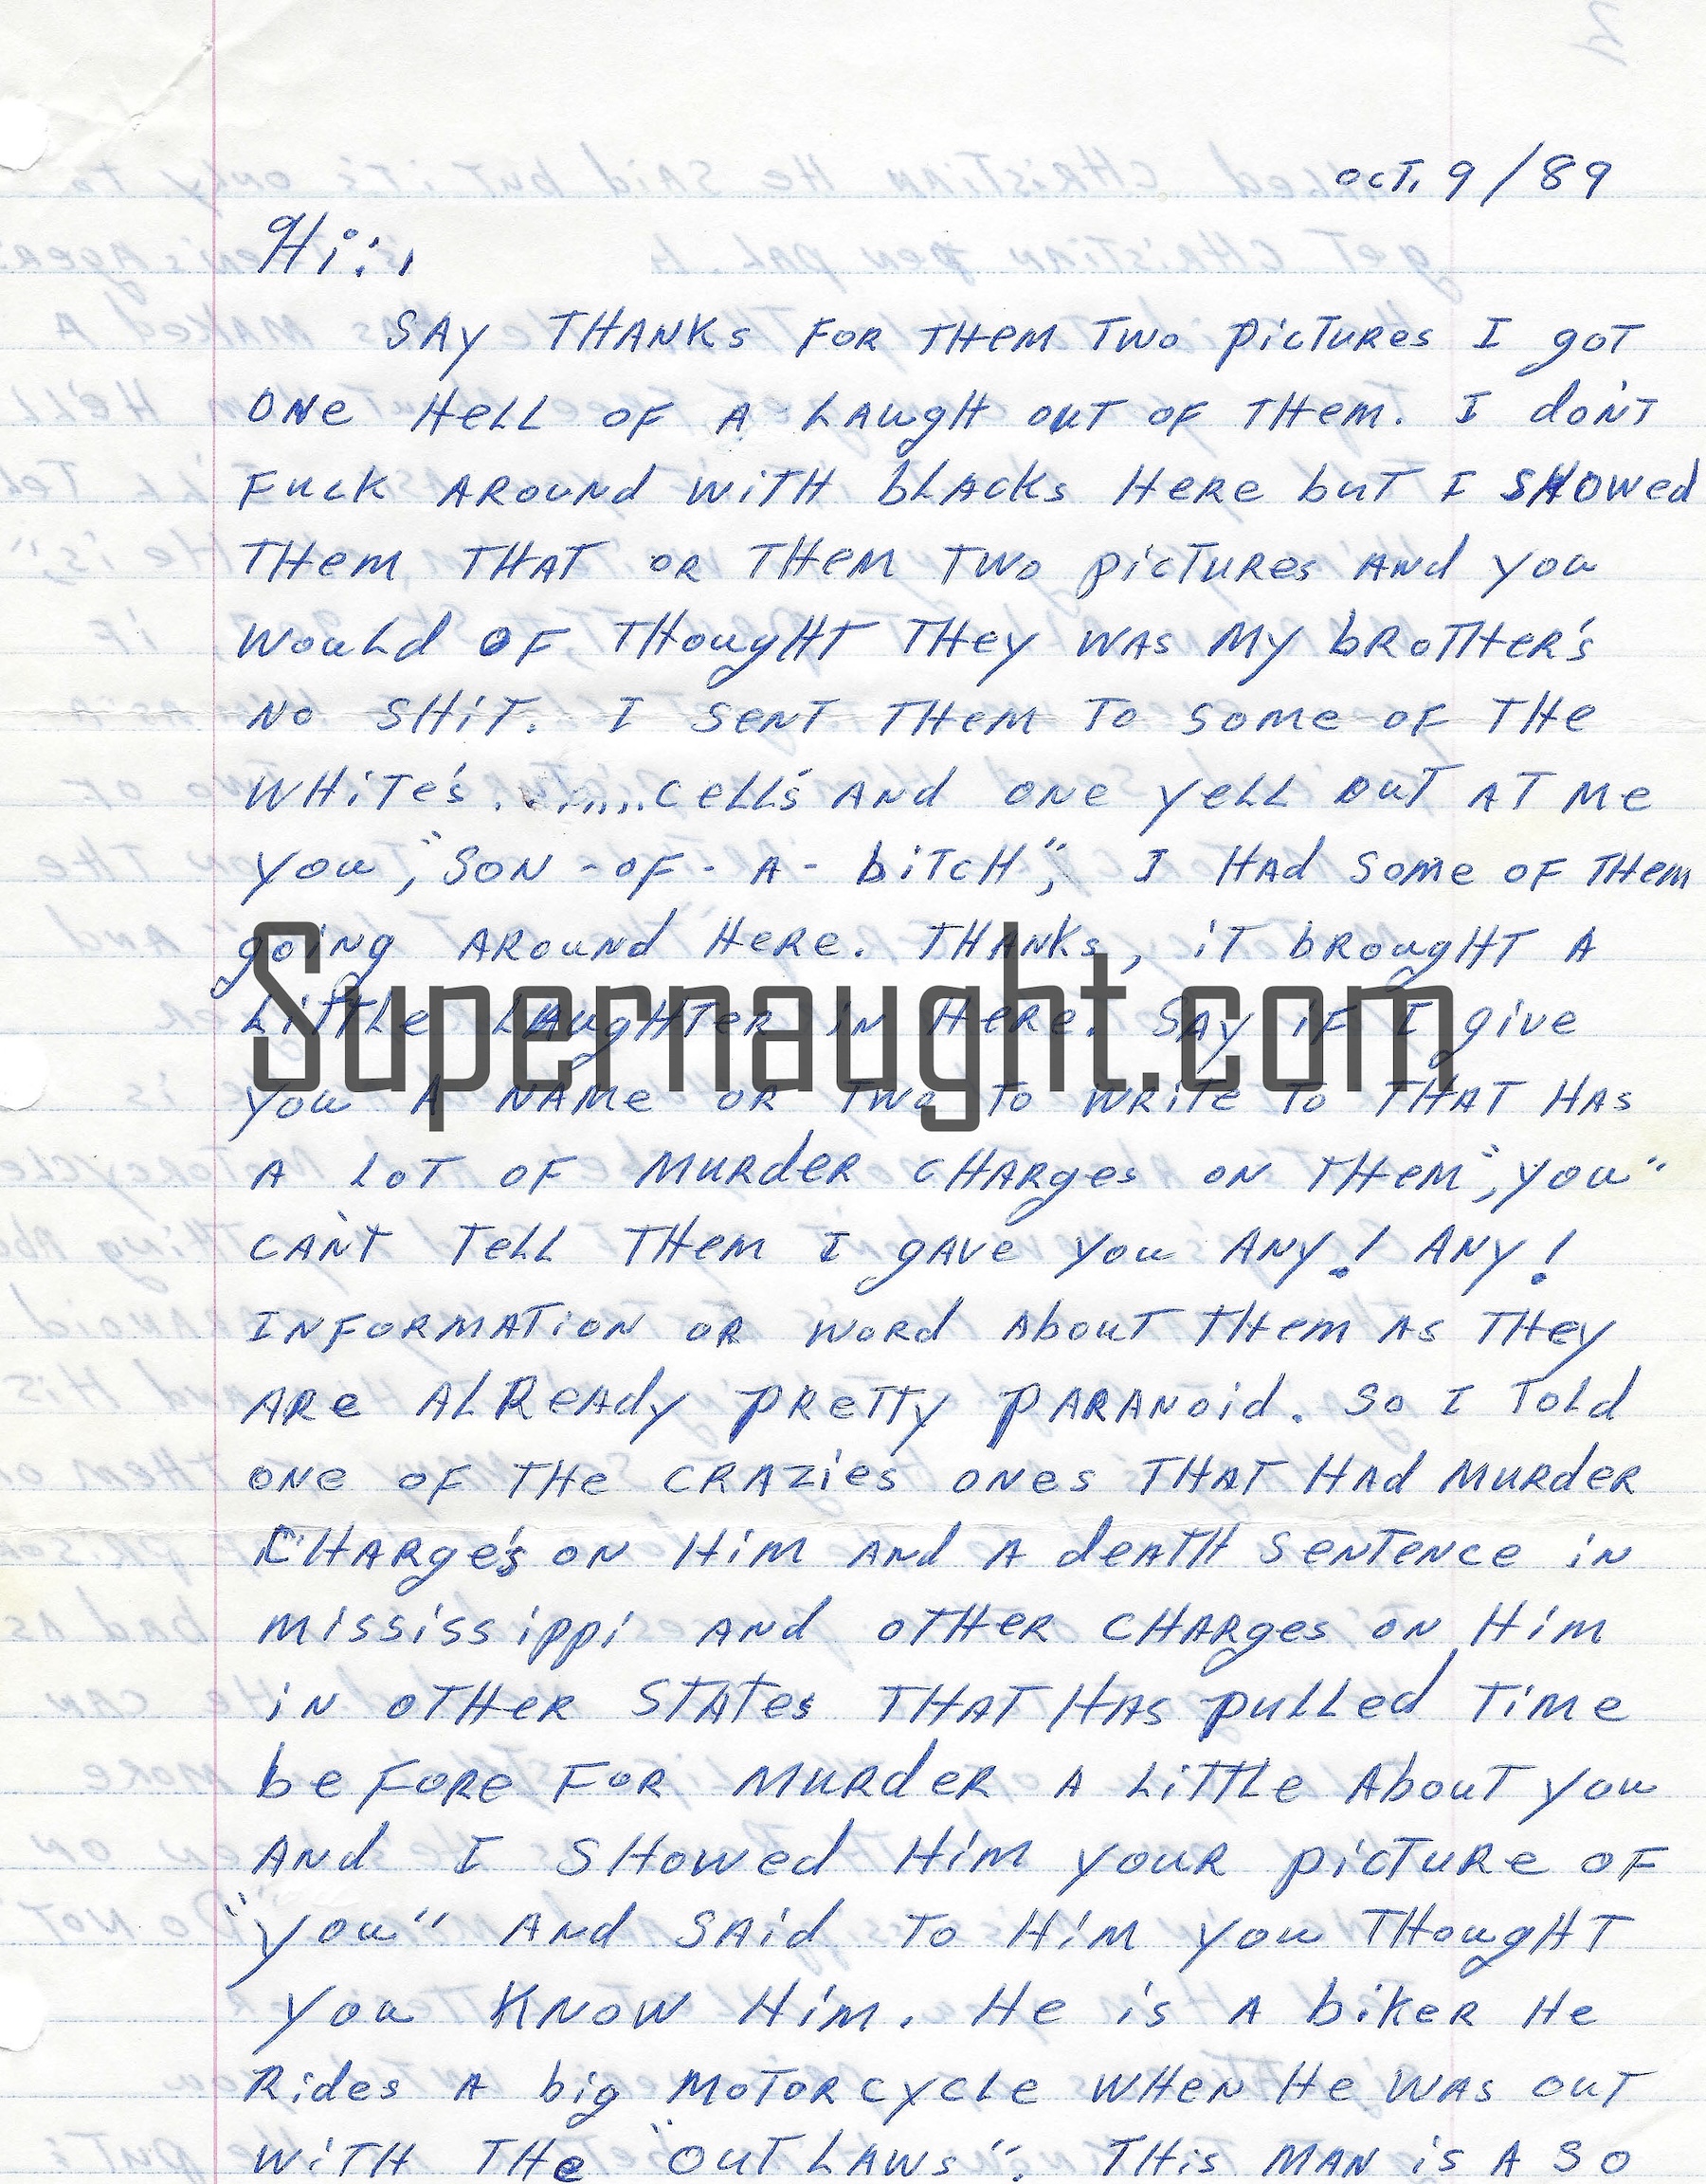 Oct. 9/89
Hi:,
SAY THANKS FOR THEM TWO PICTURES I GOT
ONE HELL OF A LAUGH OUT OF THEM. I DON'T
FUCK AROUND WITH BLACKS HERE BUT I SHOWED
THEM THAT OR THEM TWO PICTURES AND YOU
WOULD OF THOUGHT THEY WAS MY BROTHER'S
NO SHIT. I SENT THEM TO SOME OF THE
WHITE'S ........ CELL'S AND ONE YELL OUT AT ME
YOU, "SON-OF-A-BITCH", I HAD SOME OF THEM
GOING AROUND HERE. THANKS, IT BROUGHT A
LITTLE LAUGHTER IN HERE. SAY IF I GIVE
Supernaught.com
YOU A NAME OR TWO TO WRITE TO THAT HAS
A LOT OF MURDER CHARGES ON THEM, "YOU"
CAN'T TELL THEM I GAVE YOU ANY! ANY!
INFORMATION OR WORD ABOUT THEM AS THEY
ARE ALREADY PRETTY PARANOID. SO I TOLD
ONE OF THE CRAZIES ONES THAT HAD MURDER
CHARGE'S ON HIM AND A DEATH SENTENCE IN
MISSISSIPPI AND OTHER CHARGES ON HIM
IN OTHER STATES THAT HAS PULLED TIME
BEFORE FOR MURDER A LITTLE ABOUT YOU
AND I SHOWED HIM YOUR PICTURE OF
"YOU" AND SAID TO HIM YOU THOUGHT
YOU KNOW HIM. HE IS A BIKER HE
RIDES A BIG MOTORCYCLE WHEN HE WAS OUT
WITH THE "OUT LAWS". THIS MAN IS A SO